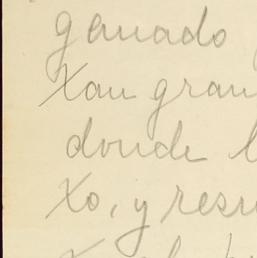 ganado
tan gran
donde l
to, y resu